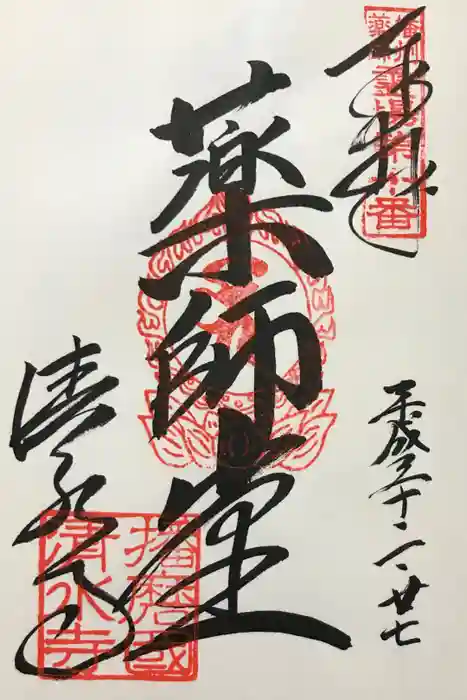 奉拝
播州薬師霊場第
番
薬師堂
平成三十
廿七
清水寺
播磨國
清水寺